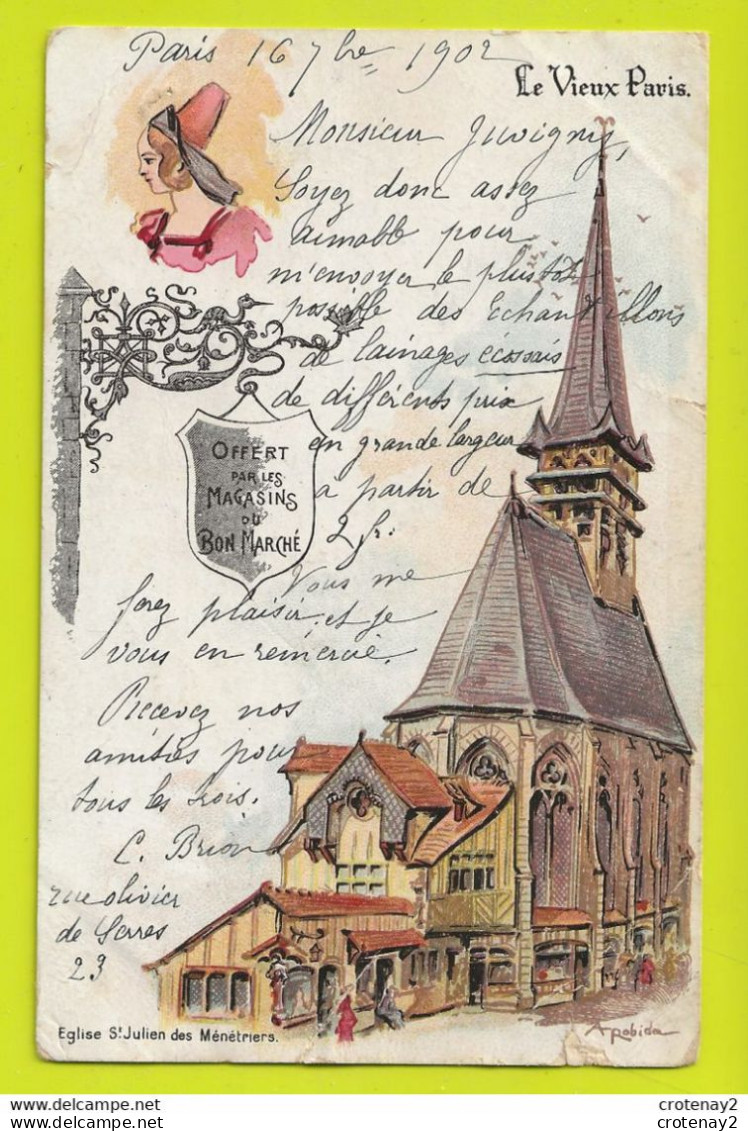 Paris 16 7bre 1902
Le Vieux Paris.
Monsieur Juvigny,
Soyez donc assez
aimable pour
m'envoyer le plustôt
possible des Echantillons
de lainages ecossais
de différents prix
en grande largeur
à partir de
2 fr.
Vous me
ferez plaisir et je
vous en remercie.
Recevez nos
amitiés pour
tous les trois.
C. Brion
rue olivier
de Serres
23
OFFERT
PAR LES
MAGASINS
DU
BON MARCHÉ
Eglise St Julien des Ménétriers.
A Robida
crotenay2
crotenay2